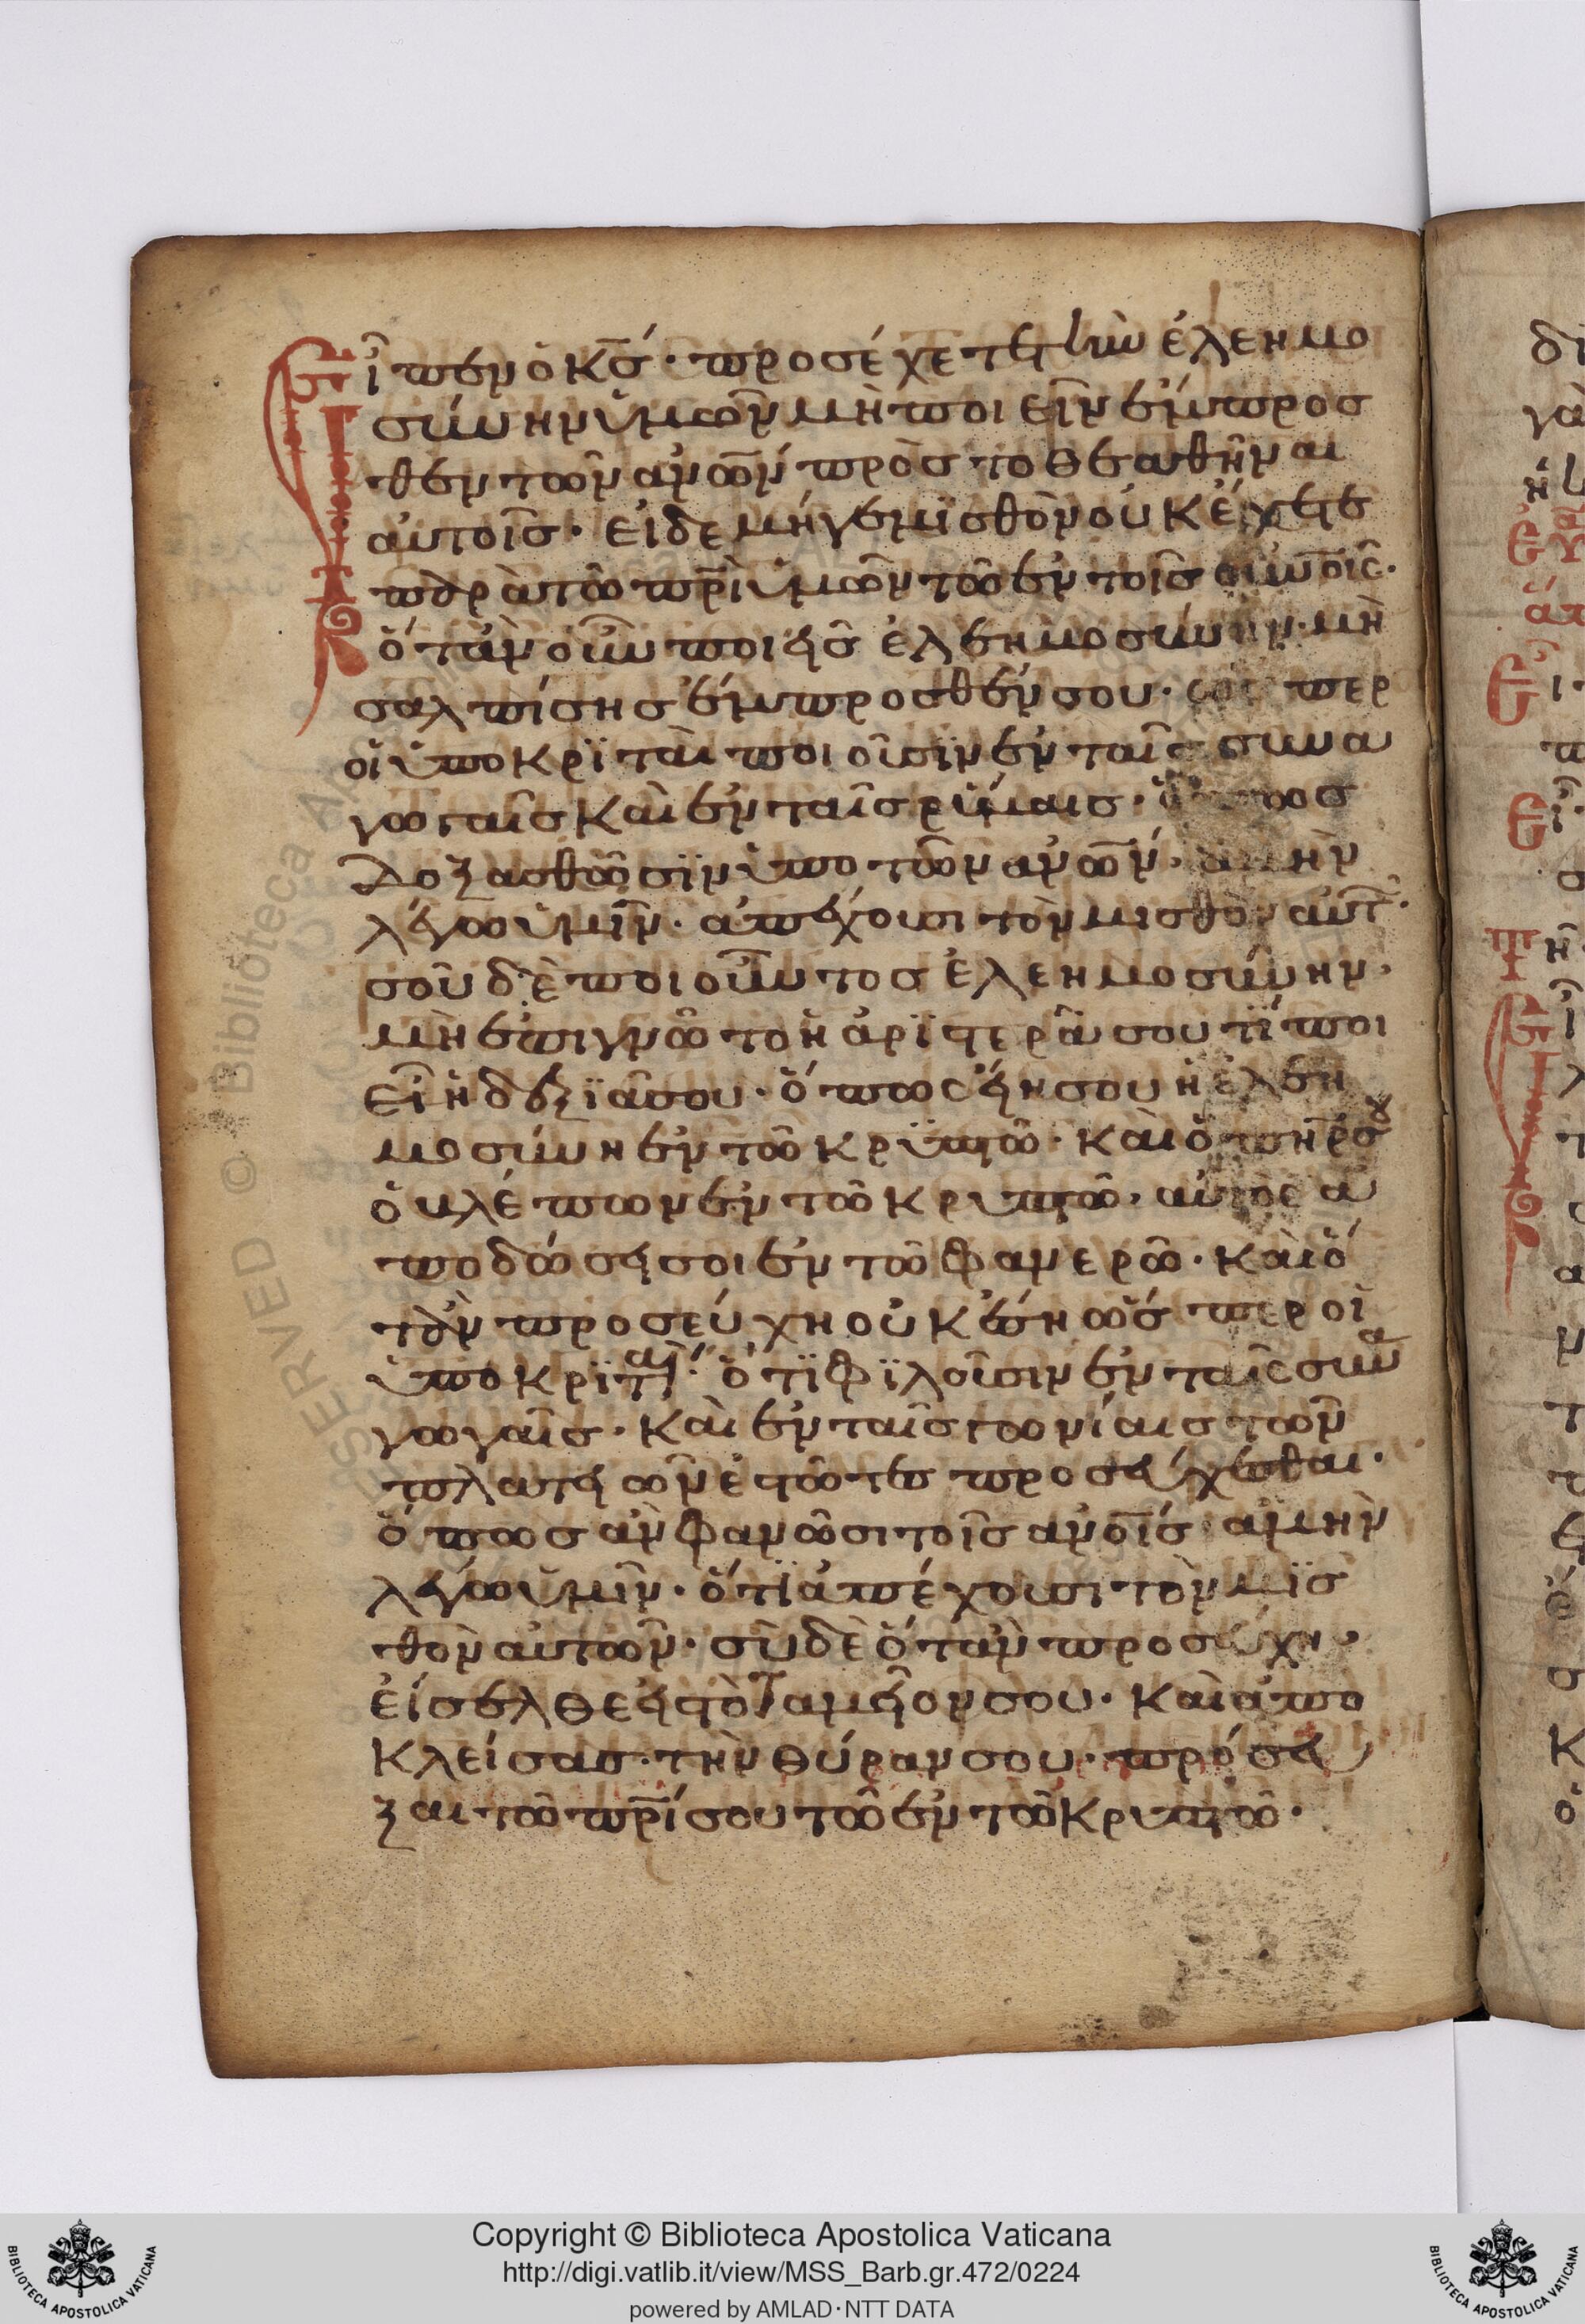 Εἶπεν ὁ κ̅ς̅· προσέχετε τὴν ἐλεημο
σύνην ὑμῶν μὴ ποιεῖν ἔμπροσ
θεν τῶν ἀν̅ω̅ν̅ πρὸς το θεαθῆναι
αὐτοῖς· εἰδε μήγε μϊσθὸν οὐκ ἔχετε
παρὰ τῶ π̅ρ̅ὶ ὑμῶν τῶ ἐν τοῖς οὐν̅οῖς·
ὅταν οὖν ποιεῖς ἐλεημοσύνην· μὴ
σαλπίσης ἔμπροσθέν σου· ὥσπερ
οἱ ὑποκρϊταὶ ποιοῦσϊν ἐν ταῖς συνα
γωγαῖς καὶ ἐν ταῖς ρύμαις· ὅπως
δοξασθῶσϊν ὑπο τῶν ἀν̅ω̅ν̅· ἀμὴν
λέγω ὑμῖν· ἀπέχουσι τὸν μισθὸν αὐτ·
σοῦ δὲ ποιοῦντος ἐλεημοσύνην·
μὴ ἐπιγνῶ το ἡ ἀρϊστερά σου τΐ ποι
εῖ ἡ δεξϊά σου· ὅπως εἴη σου ἡ ἐλεη
μοσύνη ἐν τῶ κρϋπτῶ· καὶ ὁ π̅η̅ρ̅ σου
ὁ βλέπων ἐν τῶ κρυπτῶ· αὐτὸς ἀ
ποδώσει σοι ἐν τῶ φανερῶ· καὶ ὅ
τὰν προσεύχη οὐκ ἔση ὥσπερ οἱ
ὑποκρϊταί· ὅτϊ φϊλοῦσιν ἐν ταῖς συνα
γωγαῖς· καὶ ἐν ταῖς γωνίαις τῶν
πλατειῶν ἐστῶτες προσεύχεσθαι·
ὅπως ἀν φανῶσι τοῖς ἀν̅ο̅ῖς̅ ἀμὴν
λέγω ὑμῖν· ὅτϊ ἀπέχουσι τὸν μϊσ
θὸν αὐτῶν· σὺ δὲ ὅταν προσεύχη·
εἴσελθε εἰς τὸ ταμεῖον σου· καὶ ἀπο
κλείσας· τὴν θύραν σου· πρόσευ
ξαι τῶ π̅ρ̅ί σου τῶ ἐν τῶ κρυπτῶ·
Copyright © Biblioteca Apostolica Vaticana
http://digi.vatlib.it/view/MSS_Barb.gr.472/0224
powered by AMLAD·NTT DATA
BIBLIOTECA APOSTOLICA VATICANA
BIBLIOTECA APOSTOLICA VATICANA